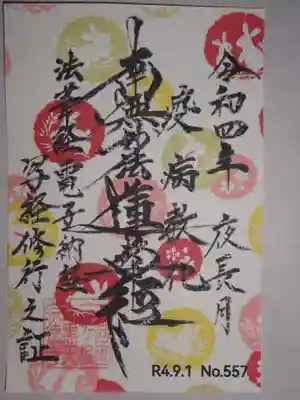 令和四年 夜長月
疫病
南無妙法蓮華経
法華経電子納経
写経修行之証
R4.9.1 No.557